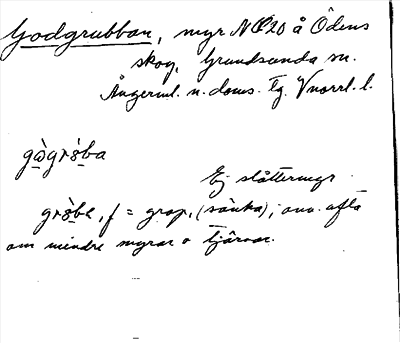 Godgrubban, myr NO 20 å Ödens
skog, Grundsunda sn.
Ångerml. n. doms. Tg. Vnorrl. l.
gὼgrὸ̣ba
Ej slåttermyr.
grὸ̣ba, f = grop, (sänka), anv. ofta
om mindre myrar o tjärnar.